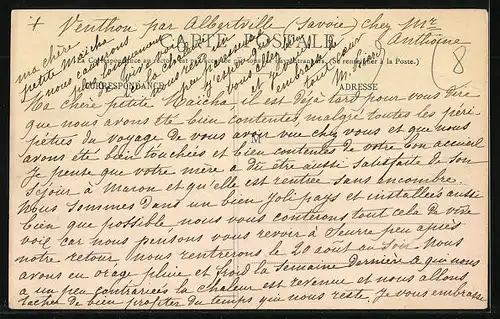 + Venthon par Albertville (Savoie) chez Mr Anthoine
8
CARTE POSTALE
La Correspondance au recto n'est pas acceptée par tous les pays étrangers. (Se renseigner à la Poste.)
CORRESPONDANCE
ADRESSE
ma chère
petite Maicha
nous
plus longuement
de vive voix
j'espère que
vous allez bien
et vous
embrasse
tout cœur
M.
Ma chère petite Maicha, il est déjà tard pour vous dire
que nous avons été bien contentes malgré toutes les péri-
péties du voyage de vous avoir vue chez vous et que nous
avons été bien touchées et bien contentes de votre bon accueil
Je pense que votre mère a dû être aussi satisfaite de son
séjour à Maron et qu'elle est rentrée sans encombre.
Nous sommes dans un bien joli pays et installées aussi
bien que possible, nous vous conterons tout cela de vive
voix car nous pensons vous revoir à Seurre peu après
notre retour, nous rentrerons le 20 août au soir. Nous
avons eu orage pluie et froid la semaine dernière ce qui nous
a un peu contrariées la chaleur est revenue et nous allons
tacher de bien profiter du temps qui nous reste. Je vous embrasse